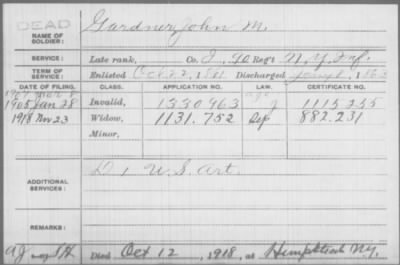 DEAD
NAME OF SOLDIER: Gardner, John M.
SERVICE: Late rank, Co. I, 90 Reg't N.Y. Inf.
TERM OF SERVICE: Enlisted Oct 22, 1861 Discharged 1863
DATE OF FILING. CLASS. APPLICATION NO. LAW. CERTIFICATE NO.
1907 Mar 8 age
1905 Jan 28 Invalid, 1330963 J 1115255
1918 Nov 23 Widow, 1131.752 882.231
Minor,
ADDITIONAL SERVICES: D 1 U.S. Art.
REMARKS:
Died Oct 12, 1918, at Hempstead N.Y.